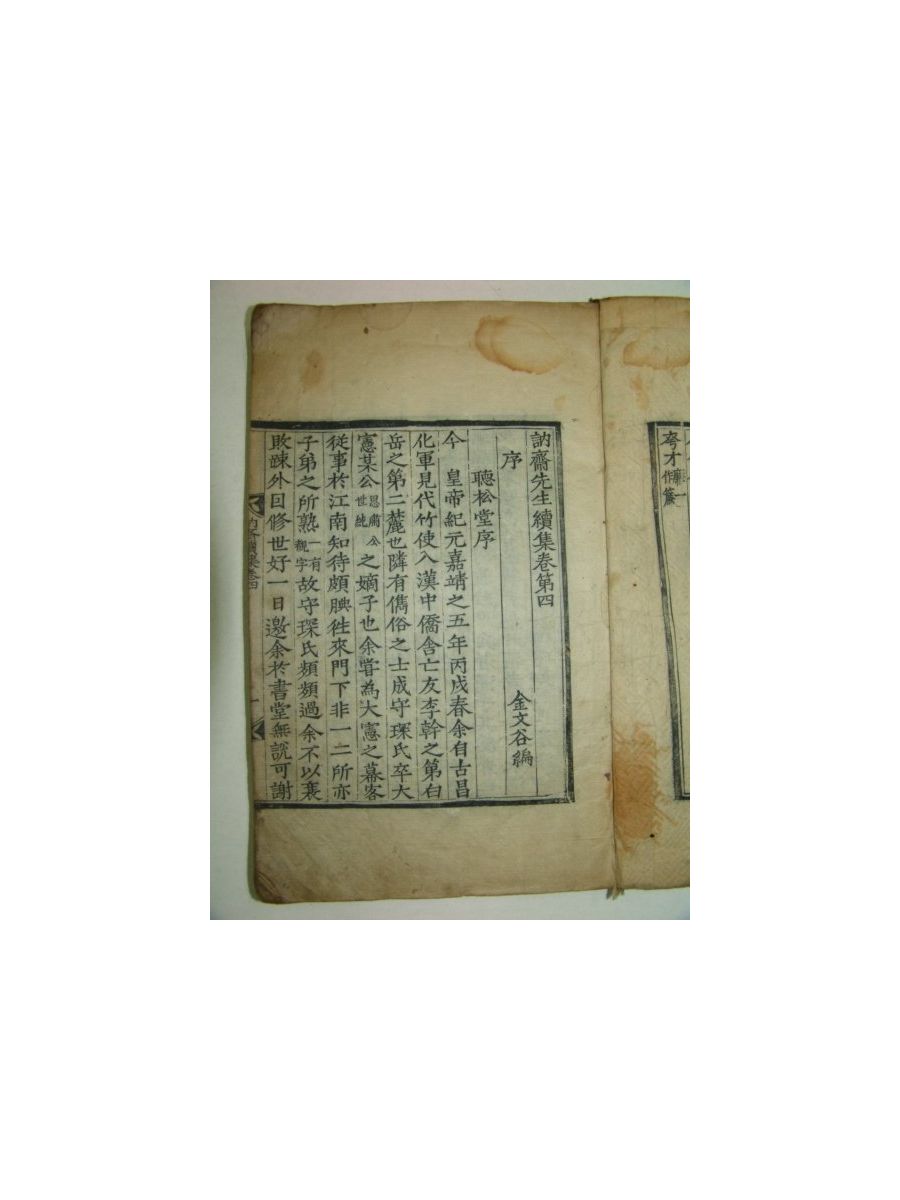 夸才廉一作簾
訥齋先生續集卷第四
金文谷編
序
聽松堂序
今 皇帝紀元嘉靖之五年丙戌春余自古昌
化軍見代竹使入漢中僑舍亡友李幹之第白
岳之第二麓也隣有儁俗之士成守琛氏卒大
憲某公思肅公世純之嫡子也余嘗為大憲之幕客
從事於江南知待頗腆徃來門下非一二所亦
子弟之所熟一有觀字故守琛氏頻頻過余不以衰
敗踈外回修世好一日邀余於書堂無說可謝